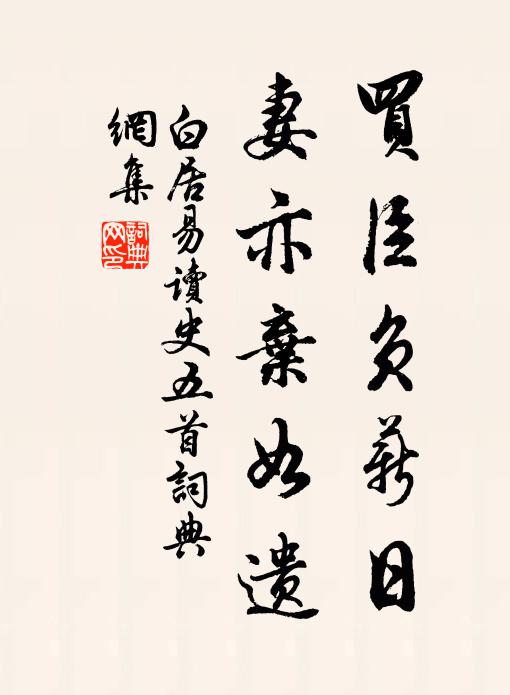 買臣負薪日
妻亦棄如遺
白居易讀史五首詞典
網集
詞典
网印